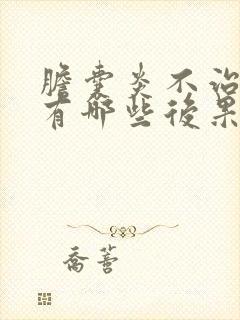 膽囊炎不治
有哪些後果
喬薈